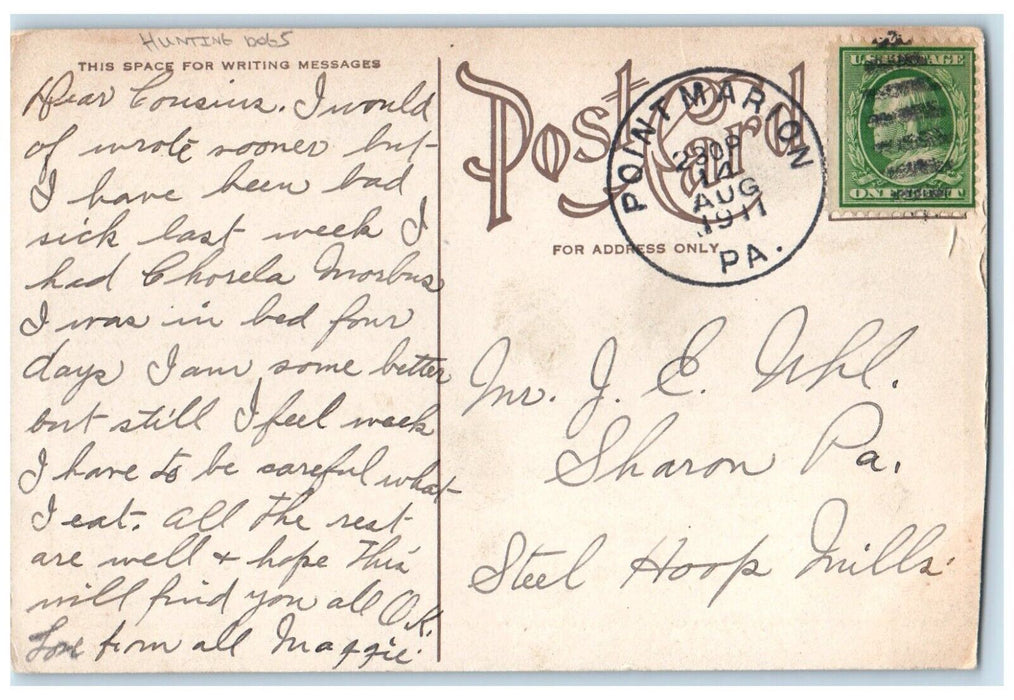 HUNTING DOGS
THIS SPACE FOR WRITING MESSAGES
Dear Cousins. I would
of wrote sooner but
I have been bad
sick last week I
had Chorela Morbus
I was in bed four
days I am some better
but still I feel week
I have to be careful what
I eat. all the rest
are well + hope this
will find you all O.K.
Love from all Maggie.
Post Card
FOR ADDRESS ONLY
POINT MARION
230P
14
AUG
1911
PA.
U.S. POSTAGE
ONE CENT
Mr. J. E. Uhl.
Sharon Pa.
Steel Hoop Mills.